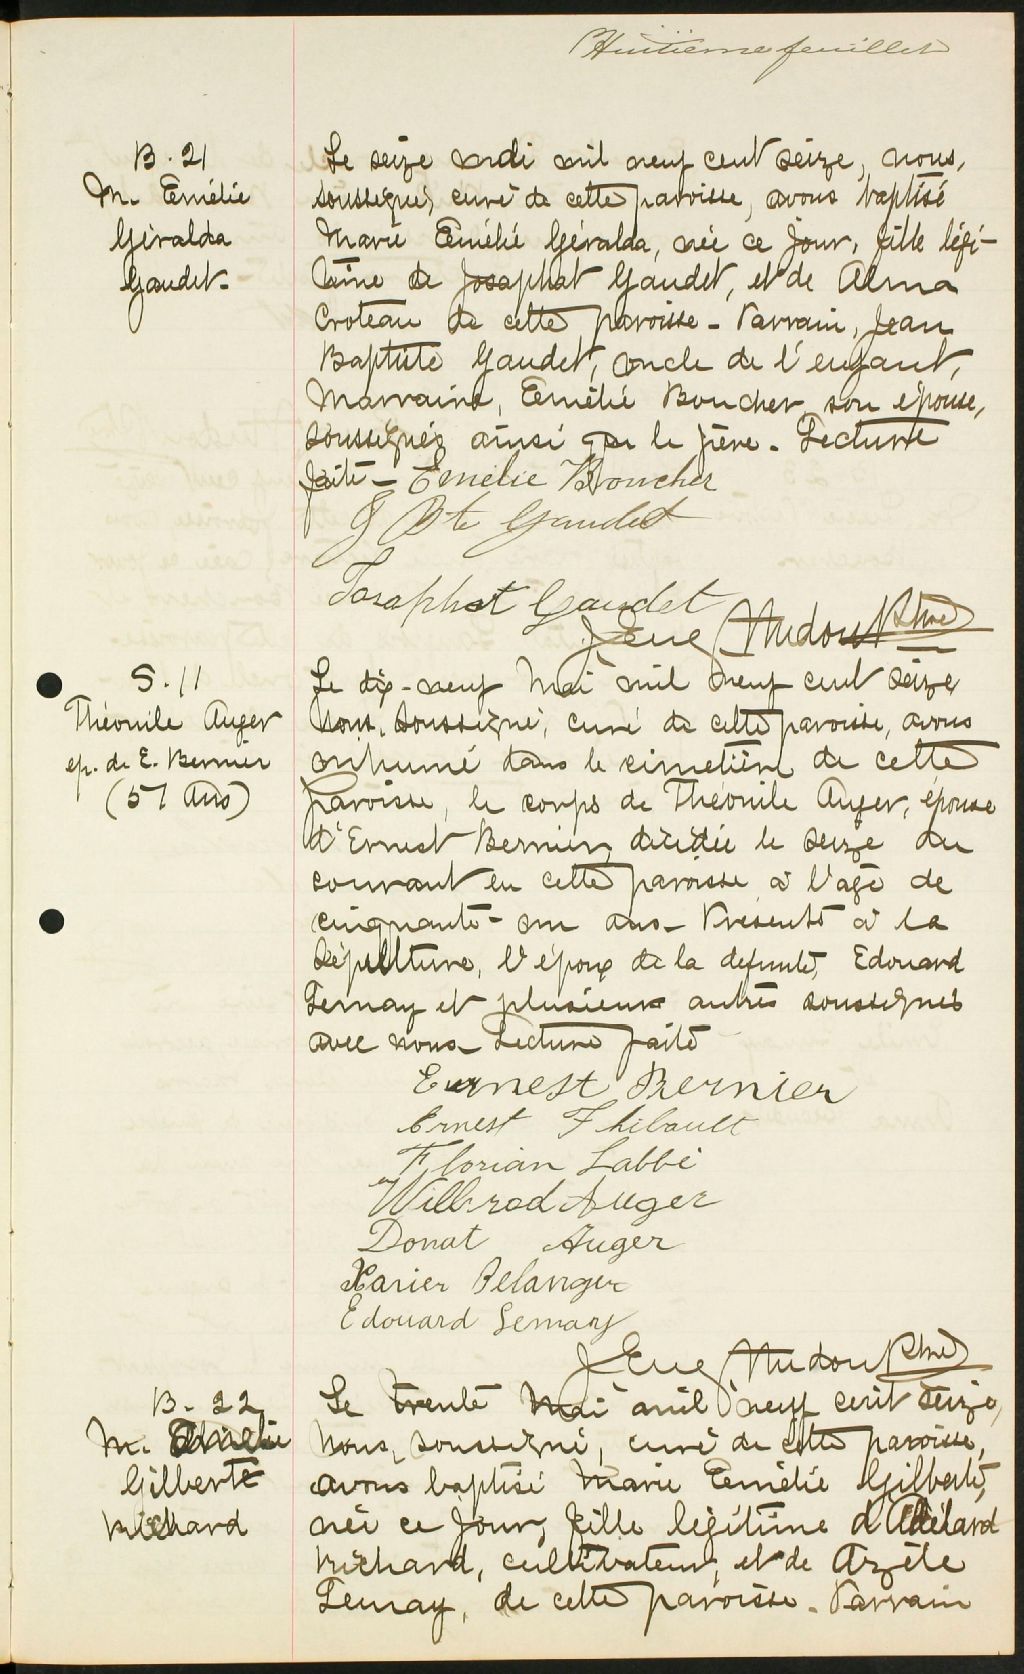 Huitième feuillet
B. 21
M. Emélie
Géralda
Gaudet.
Le seize mai mil neuf cent seize, nous,
soussigné, curé de cette paroisse, avons baptisé
Marie Emélie Géralda, née ce jour, fille légi-
time de Josaphat Gaudet, et de Alma
Croteau de cette paroisse - Parrain, Jean
Baptiste Gaudet, oncle de l'enfant,
Marraine, Emélie Boucher, son épouse,
soussignés ainsi que le père. Lecture
faite - Emélie Boucher
J Bte Gaudet
Josaphat Gaudet
Eug Ptre
S. 11
Théonile Auger
ép. de E. Bernier
(51 Ans)
Le dix-neuf Mai mil neuf cent seize
nous, soussigné, curé de cette paroisse, avons
inhumé dans le cimetière de cette
paroisse, le corps de Théonile Auger, épouse
d'Ernest Bernier, décédée le seize du
courant en cette paroisse à l'age de
cinquante-un ans - Présents à la
sépulture, l'époux de la defunte, Edouard
Lemay et plusieurs autres soussignés
avec nous - Lecture faite
Ernest Bernier
Ernest Thibault
Florian Labbé
Wilbrod Auger
Donat Auger
Xavier Belanger
Edouard Lemay
Eug Ptre
B. 22
M. Emelie
Gilberte
Richard
Le trente Mai mil neuf cent seize,
nous, soussigné, curé de cette paroisse,
avons baptisé Marie Emélie Gilberte,
née ce jour, fille légitime d'Adélard
Richard, cultivateur, et de Arzélie
Lemay, de cette paroisse. Parrain